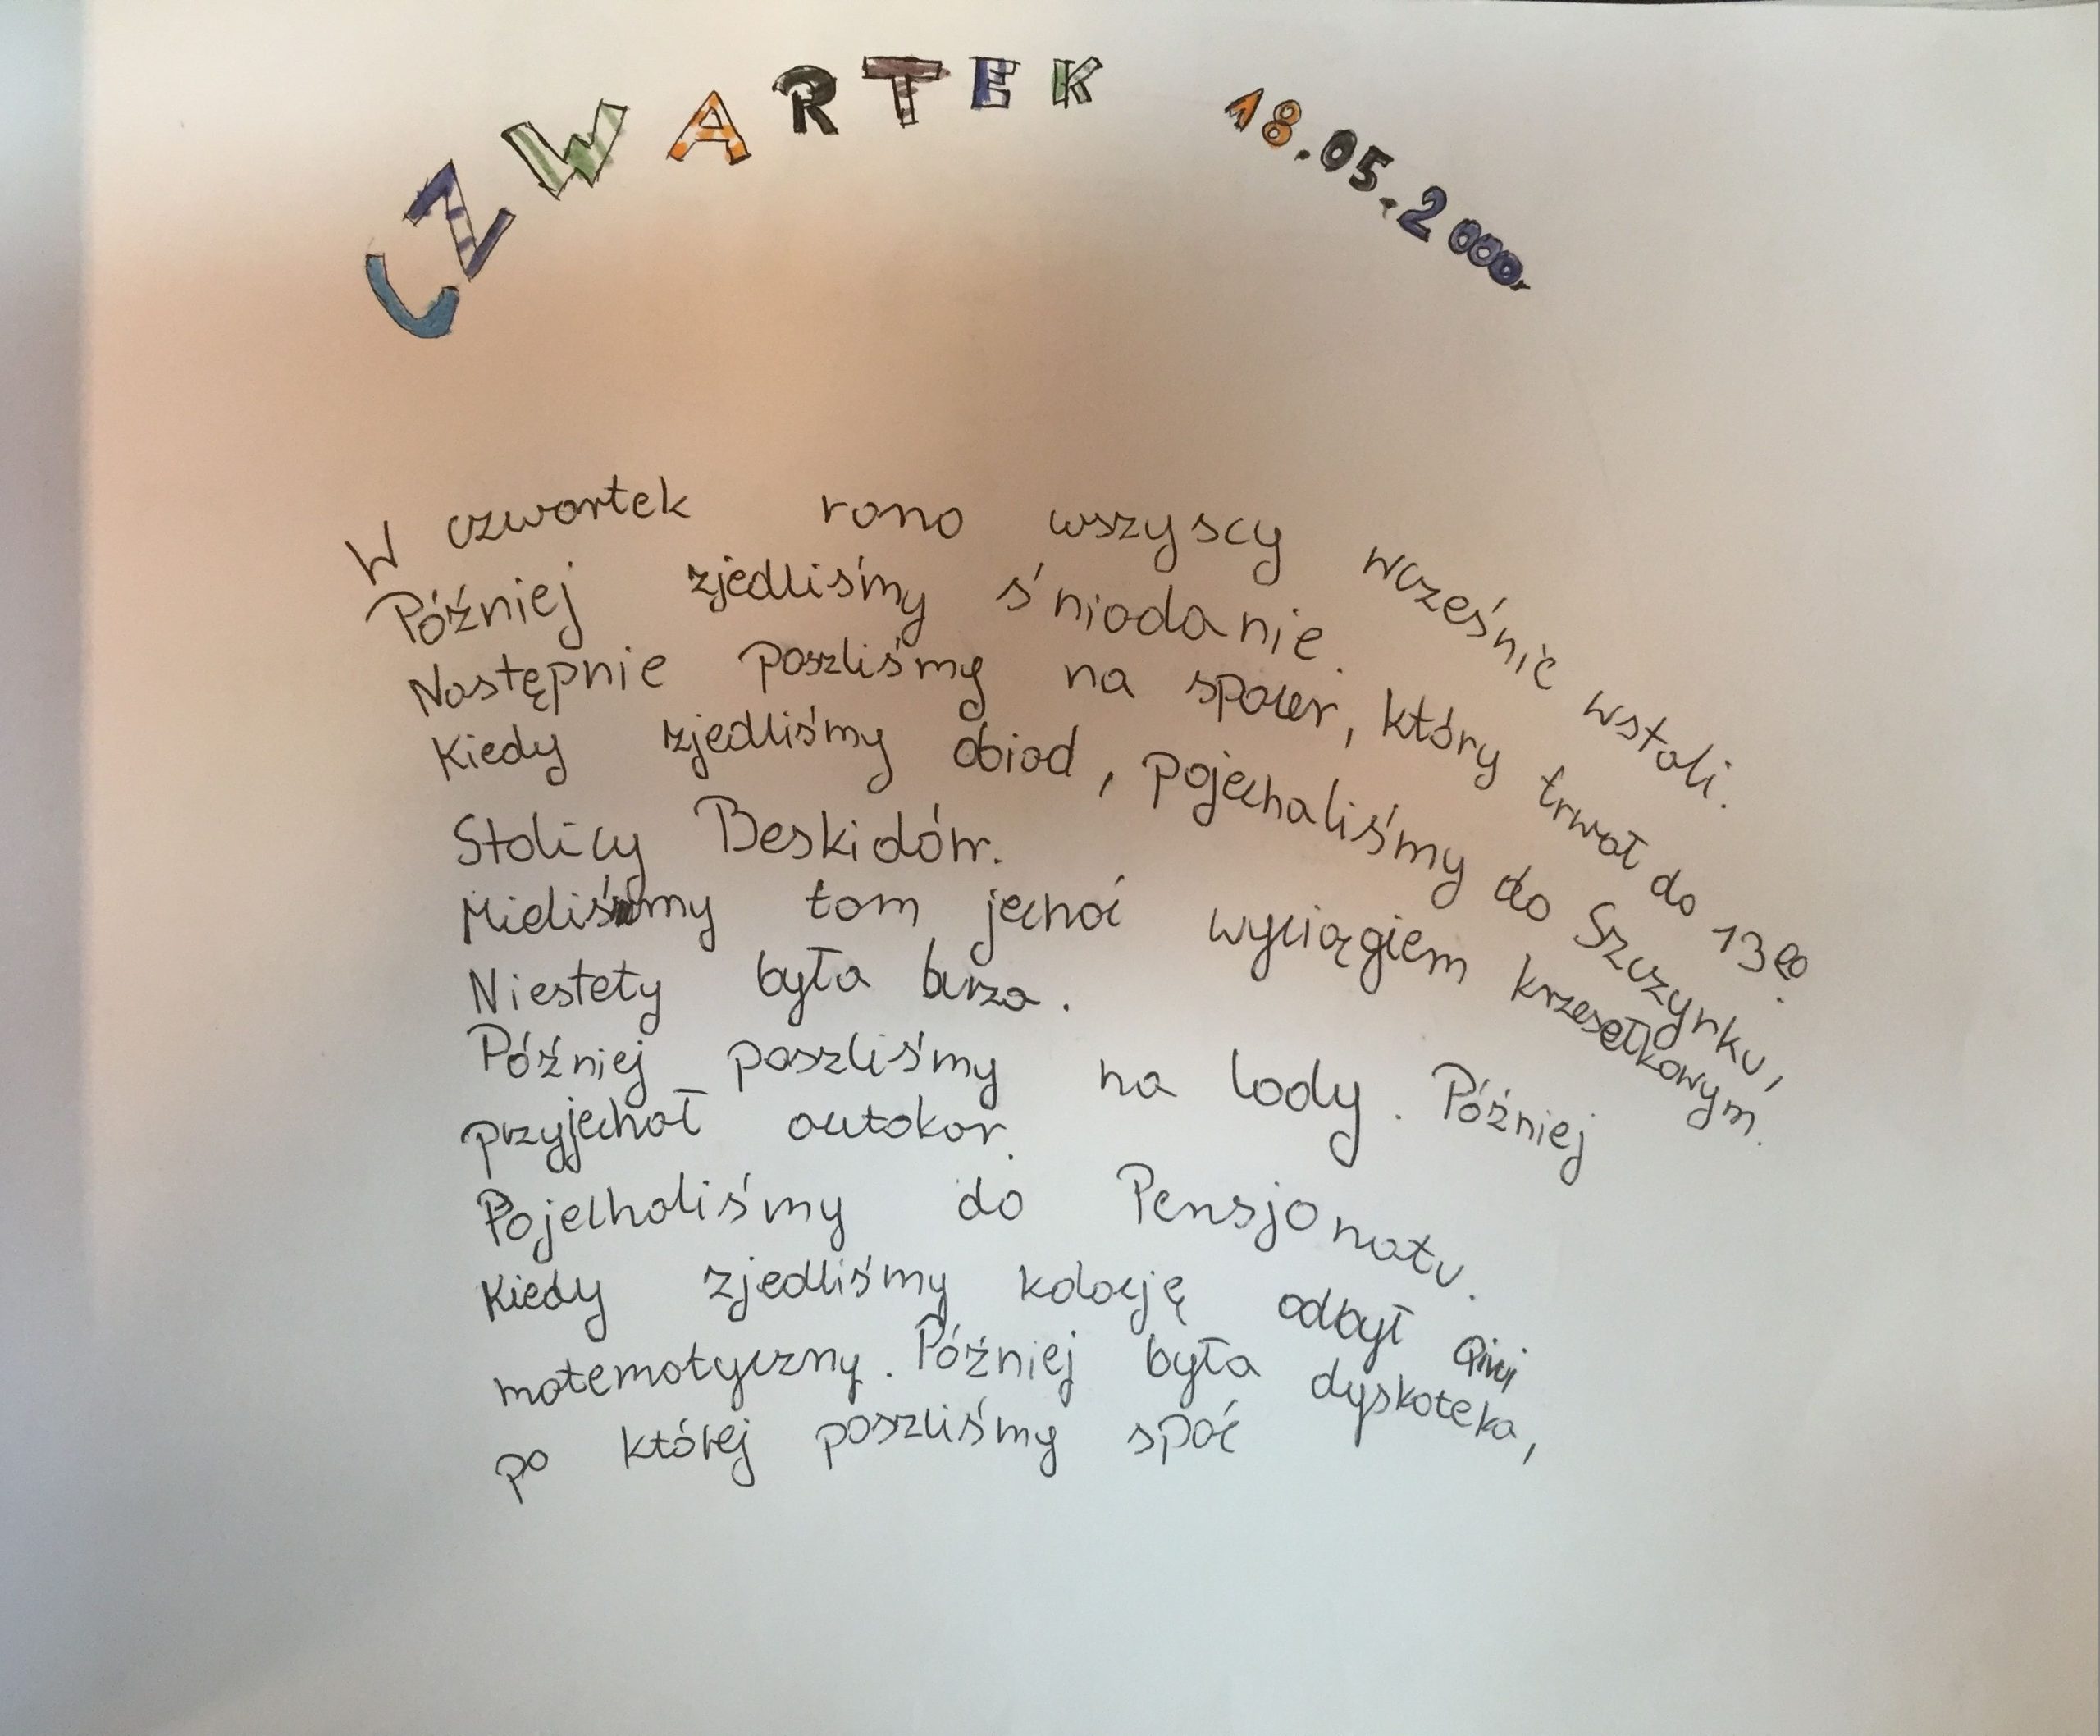 CZWARTEK 18.05.2000r
W czwartek rano wszyscy wcześnie wstali.
Później zjedliśmy śniadanie.
Następnie poszliśmy na spacer, który trwał do 13⁰⁰.
Kiedy zjedliśmy obiad, pojechaliśmy do Szczyrku,
Stolicy Beskidów.
Mieliśmy tam jechać wyciągiem krzesełkowym.
Niestety była burza.
Później poszliśmy na lody. Później
przyjechał autokar.
Pojechaliśmy do Pensjonatu.
Kiedy zjedliśmy kolację odbył
matematyczny. Później była dyskoteka,
po której poszliśmy spać